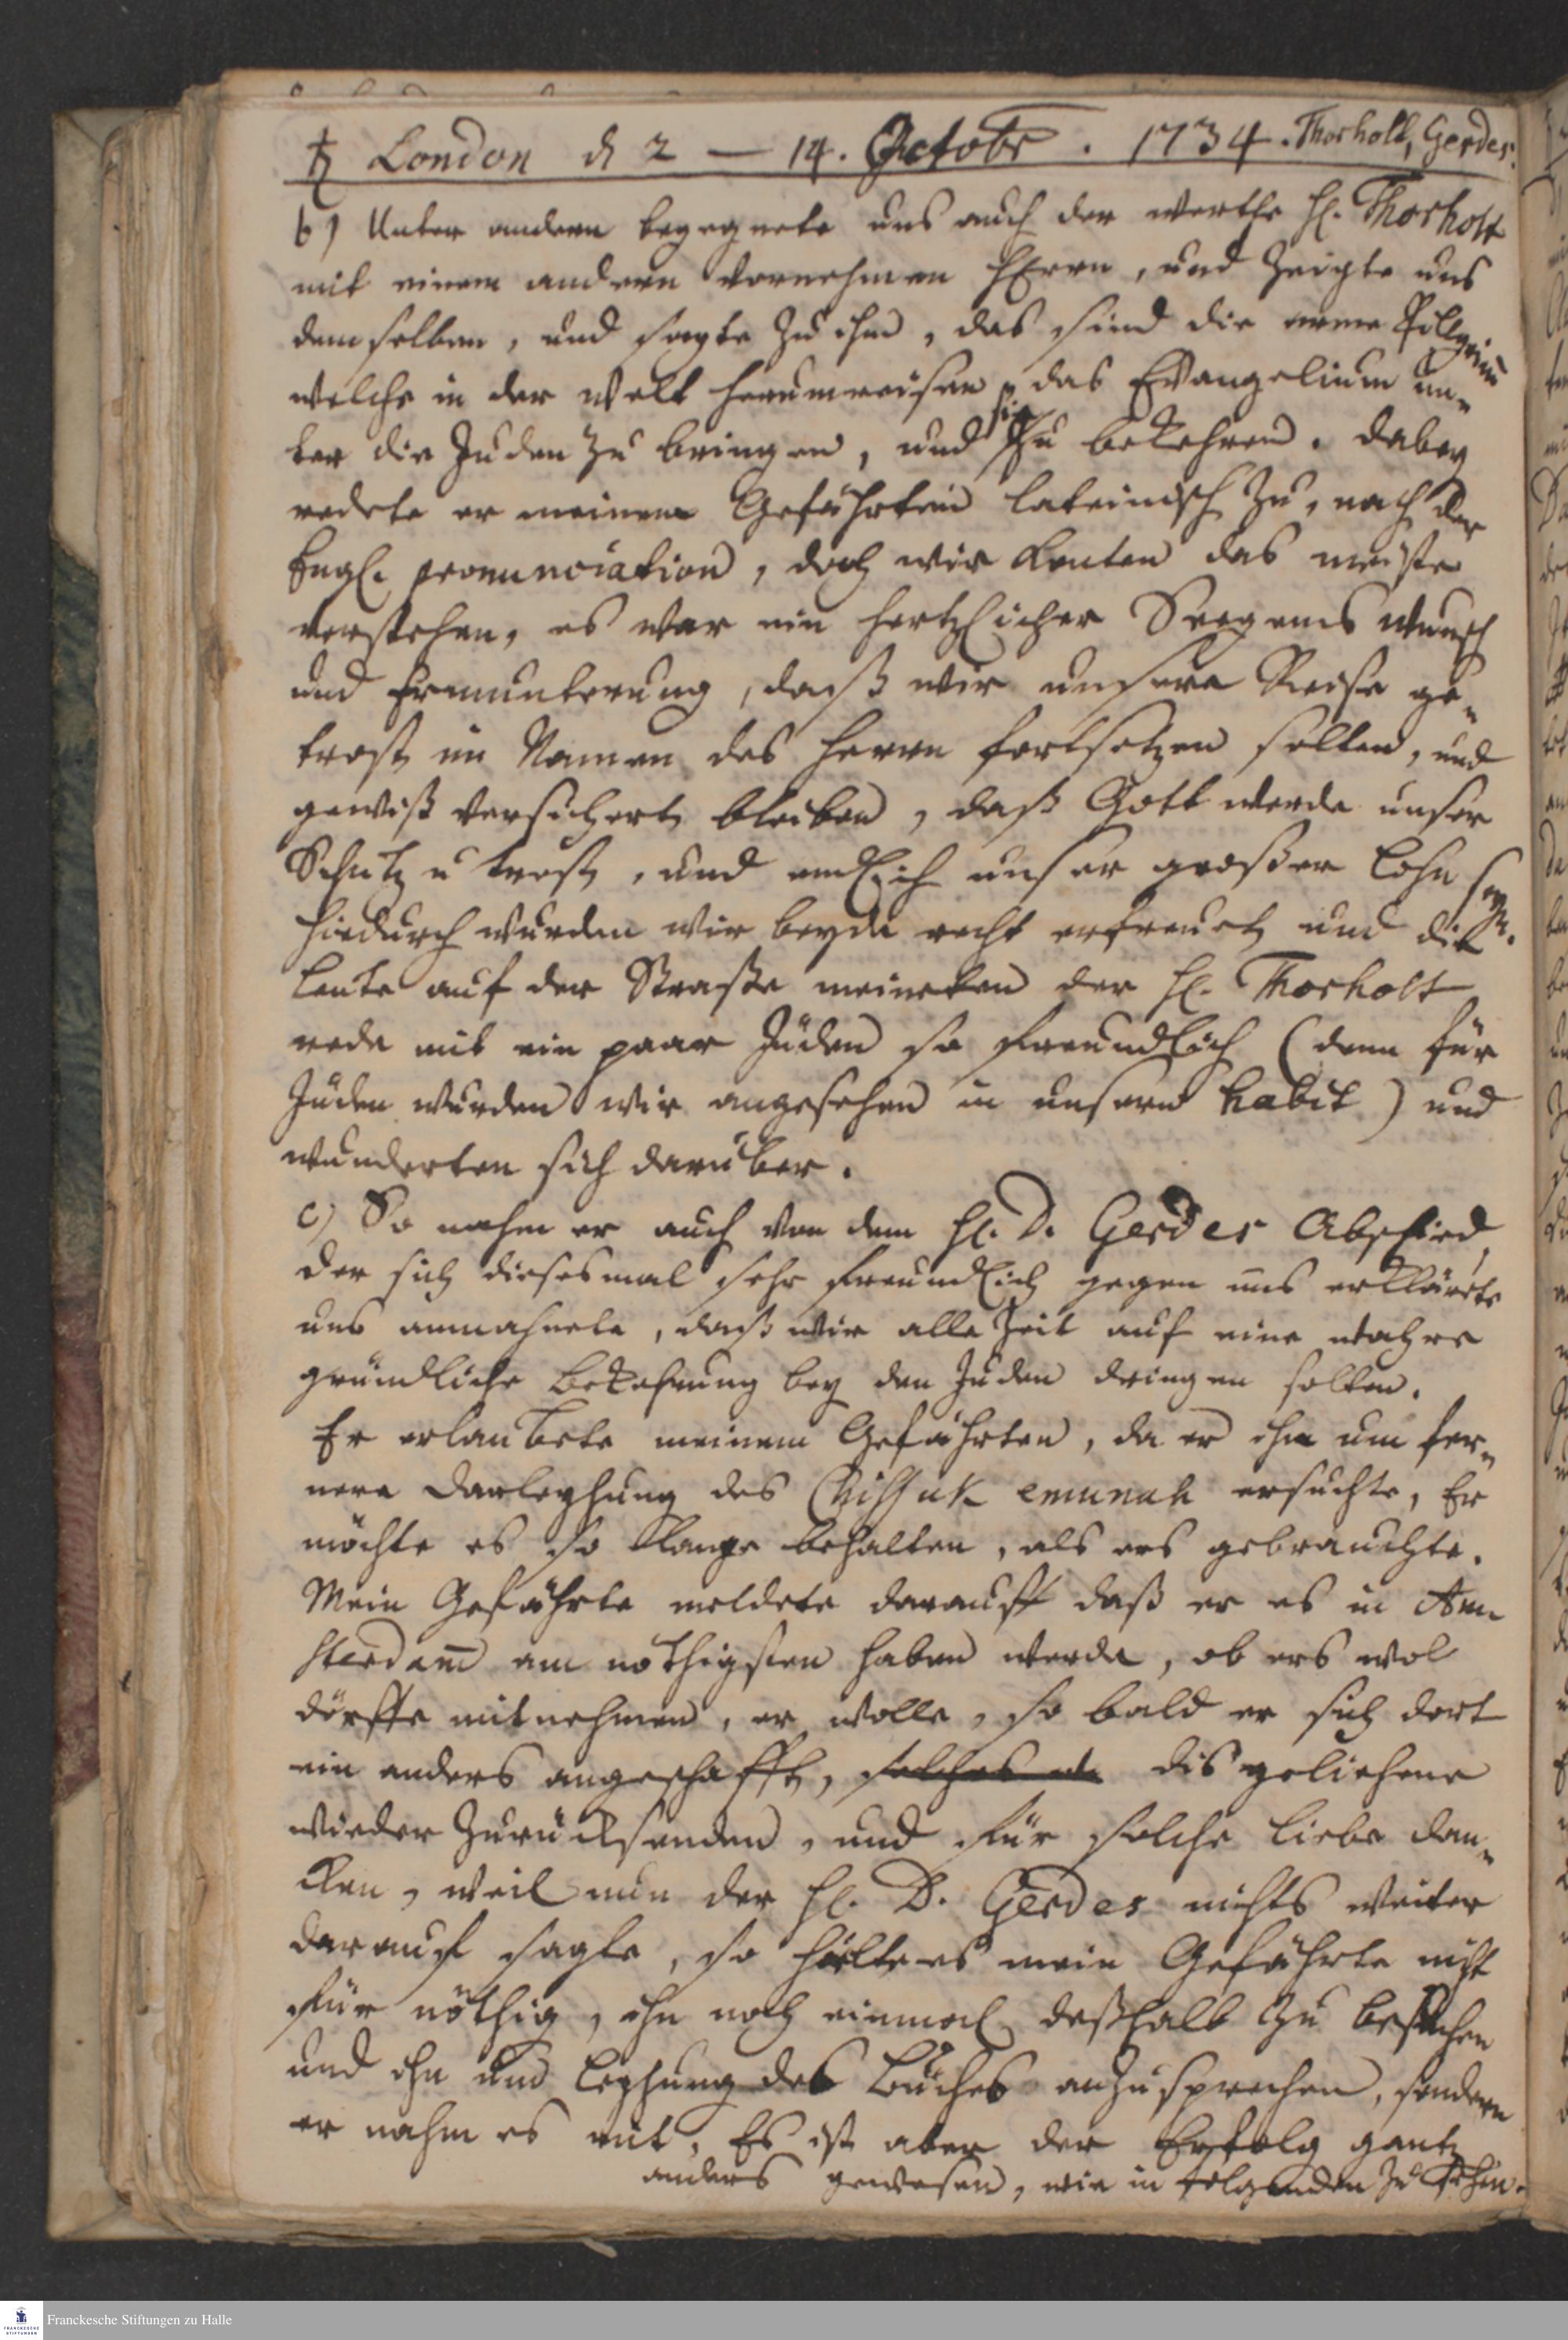 ♄ London d 2 – 14. Octobr. 1734. Thorholt, Gerdes.
b) Unter andern begegnete uns auch der werthe H. Thorholt
mit einem andern vornehmen HErrn, und zeigte uns
demselben, und sagte zu ihm, das sind die arme Pillgrim̅
welche in der Welt herumreisen, das Evangelium un-
ter die Juden zu bringen, und sie zu bekehren. Dabey
redete er meinem Gefährten lateinisch zu, nach der
Engl. pronunciation, doch wir konten das meiste
verstehen, es war ein hertzlicher Seegens wunsch
und Ermunterung, daß wir unsere Reise ge-
trost im Namen des Herrn fortsetzen sollen, und
gewiß versichert bleiben, daß Gott werde unser
Schutz u trost, und endlich unser großer Lohn seyn.
Hiedurch wurden wir beyde recht erfreuet und die
Leute auf der Straße meineten der H. Thorholt
rede mit ein paar Juden so freundlich (denn für
Juden wurden wir angesehen in unserm habit) und
wunderten sich darüber.
c) So nahm er auch von dem H. D. Gerdes Abschied,
der sich diesesmal sehr freundlich gegen uns erklärete
uns anmahnete, daß wir alle Zeit auf eine wahre
gründliche Bekehrung bey den Juden dringen solten.
Er erlaubete meinem Gefährten, da er ihn um fer-
nere Darleyhung des Chissuk emunah ersuchte, Er
möchte es so lange behalten, als ers gebrauchte.
Mein Gefährte meldete darauff daß er es in Am
sterdam̅ am nöthigsten haben werde, ob ers wol
dörffte mitnehmen, er wolle, so bald er sich dort
ein anders angeschafft, solches dis geliehene
wieder zurücksenden, und für solche Liebe dan-
ken, weil nun der H. D. Gerdes nichts weiter
darauf sagte, so hielte es mein Gefährte nicht
für nöthig, ihn noch einmal deßhalb zu besuchen
und ihn um Leyhung des Buches anzusprechen, sondern
er nahm es mit. Es ist aber der Erfolg gantz
anders gewesen, wie in folgenden zu sehen.
Franckesche Stiftungen zu Halle
FRANCKESCHE
STIFTUNGEN